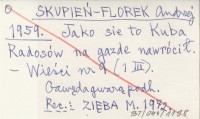 SKUPIEŃ-FLOREK Andrzej
1959. Jako sie to Kuba
Radosów na gazde nawrócił.
- Wieści nr 9 / 1 III).
Gawęda gwarą podh.
Rec.: ZIĘBA M. 1972